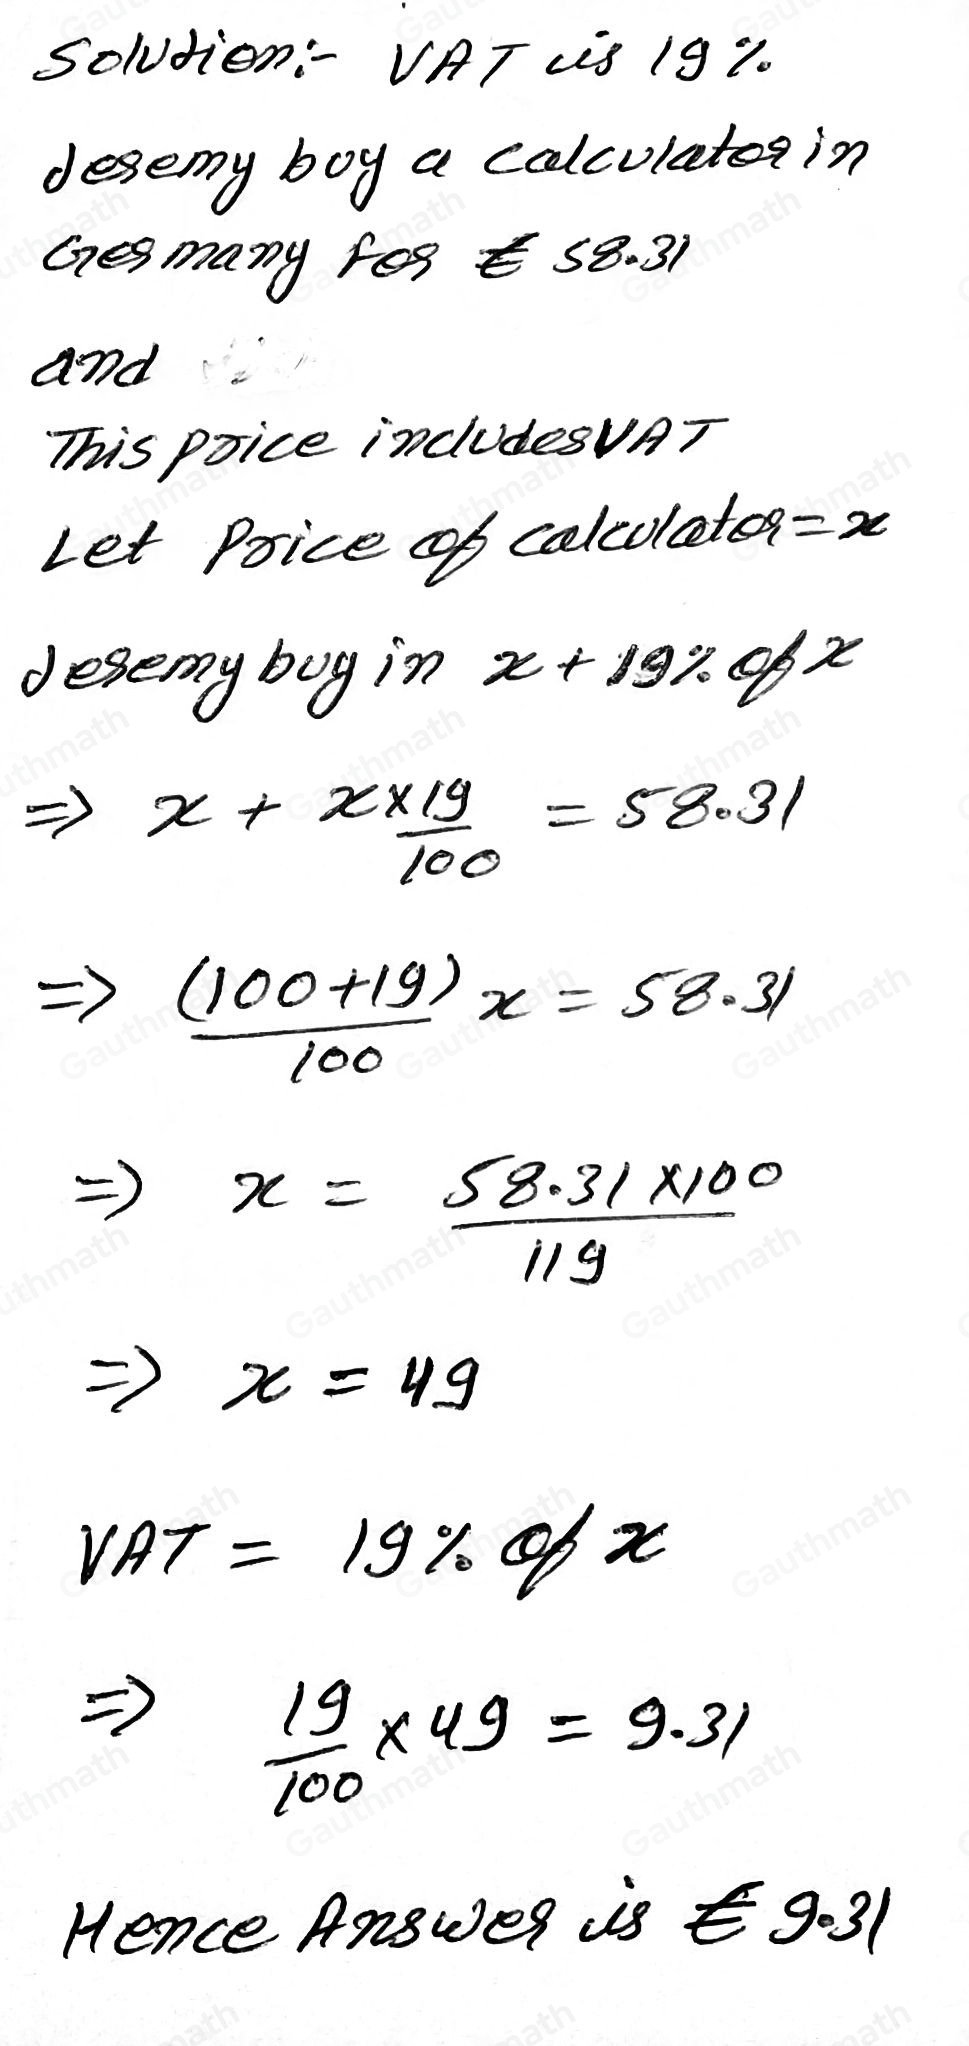 Solution:- VAT is 19%.
Jeremy buy a calculator in
Germany for € 58.31
and
This price includes VAT
Let Price of calculator = x
Jeremy buy in x + 19% of x
=> x + x×19/100 = 58.31
=> (100+19)/100 x = 58.31
=> x = 58.31×100/119
=> x = 49
VAT = 19% of x
=> 19/100 × 49 = 9.31
Hence Answer is € 9.31
Gauthmath